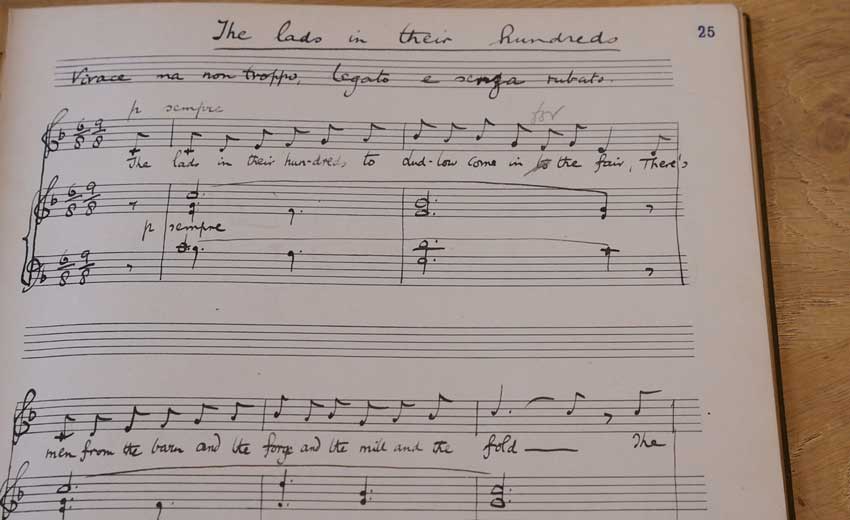 The lads in their hundreds
25
Vivace ma non troppo, legato e senza rubato.
p sempre
for
The lads in their hun-dreds to Lud-low come in to the fair, There's
p sempre
men from the barn and the forge and the mill and the fold — The